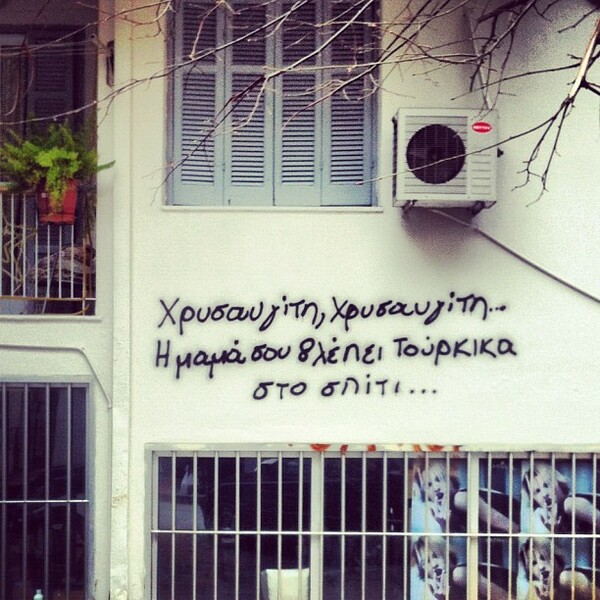 Χρυσαυγίτη, Χρυσαυγίτη...
Η μαμά σου βλέπει Τούρκικα
στο σπίτι...